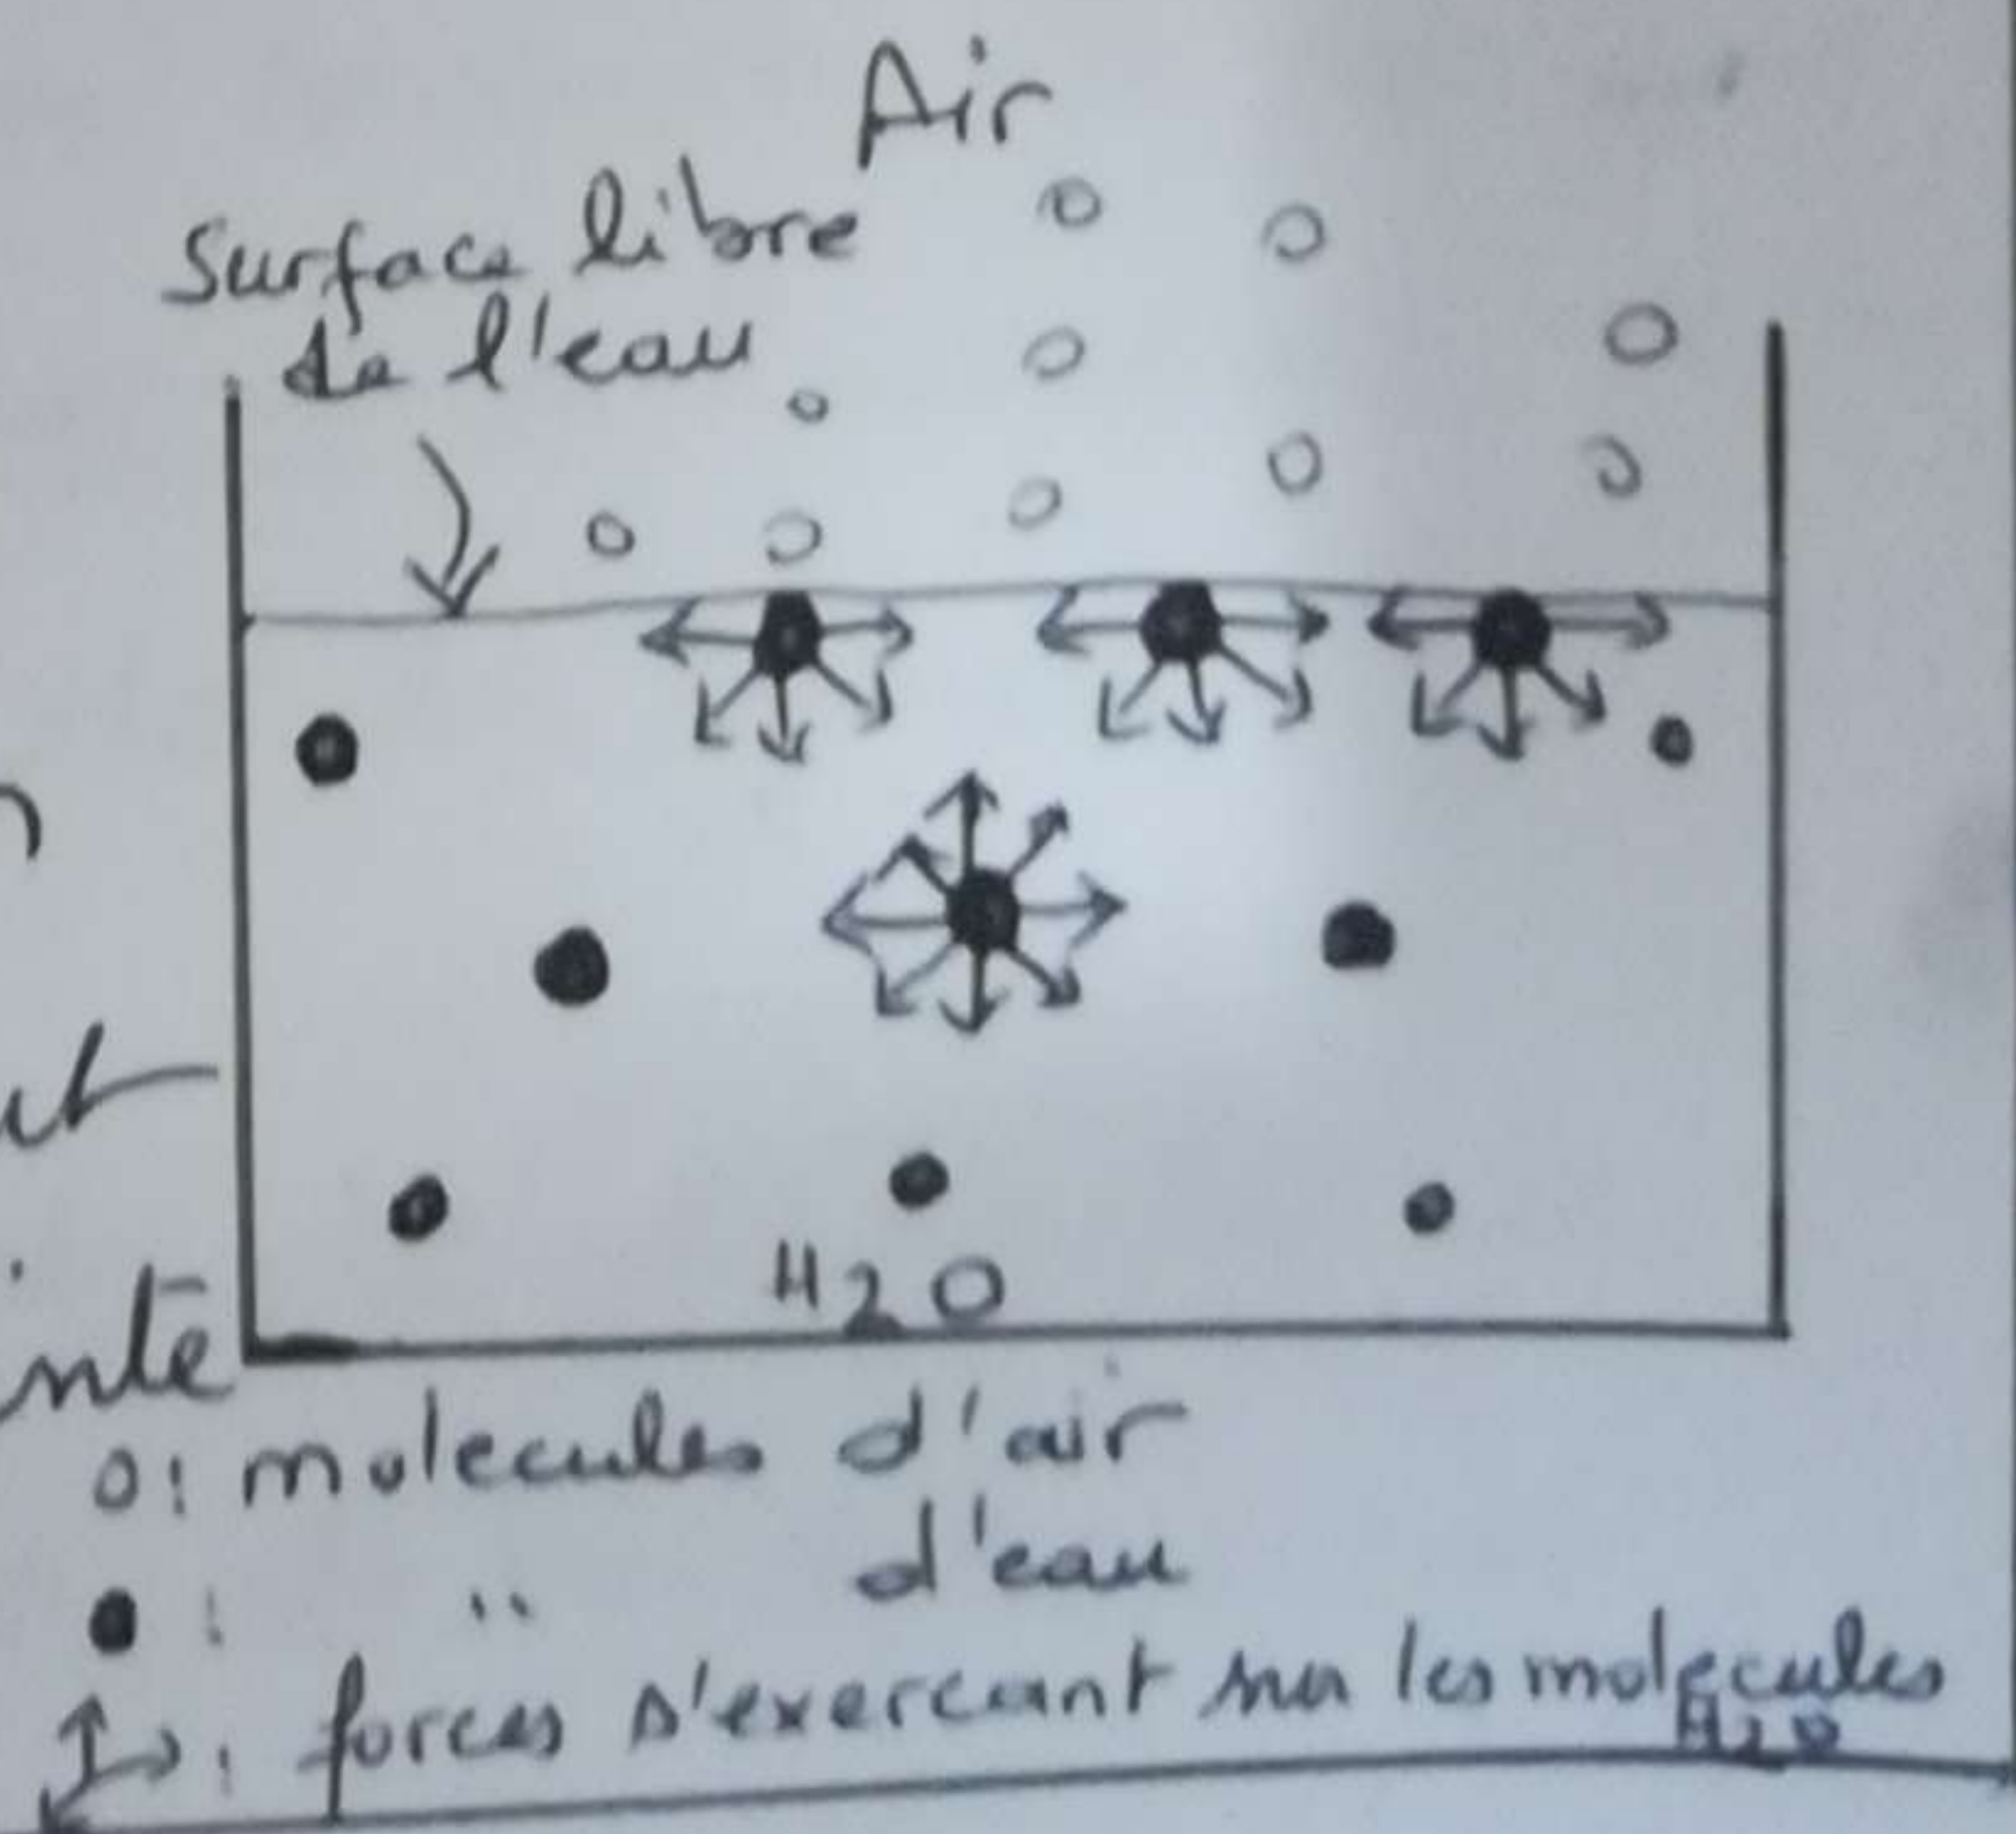 Air
Surface libre
de l'eau
H2O
o: molecules d'air
● : " d'eau
: forces s'exercant sur les molecules
H2O